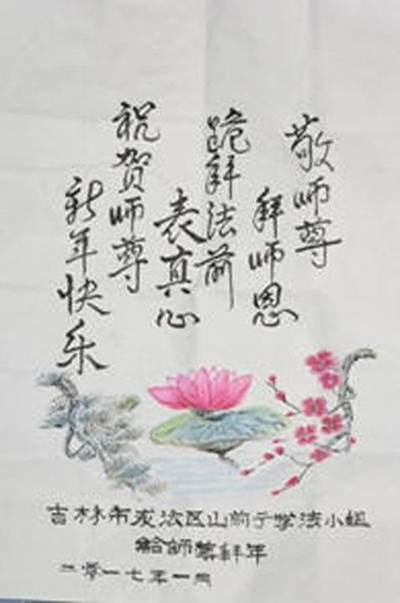 敬师尊
拜师恩
跪拜法前
表真心
祝贺师尊
新年快乐
吉林市区山前学法小组
给师尊拜年
二零一七年一月